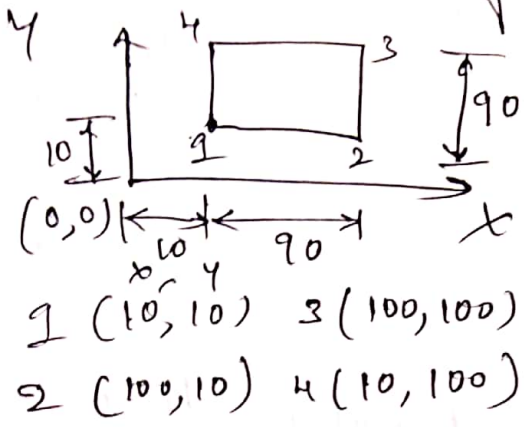 Y 4 3
90
10 1 2
(0,0) X
10 90
x, y
1 (10, 10) 3 (100, 100)
2 (100, 10) 4 (10, 100)